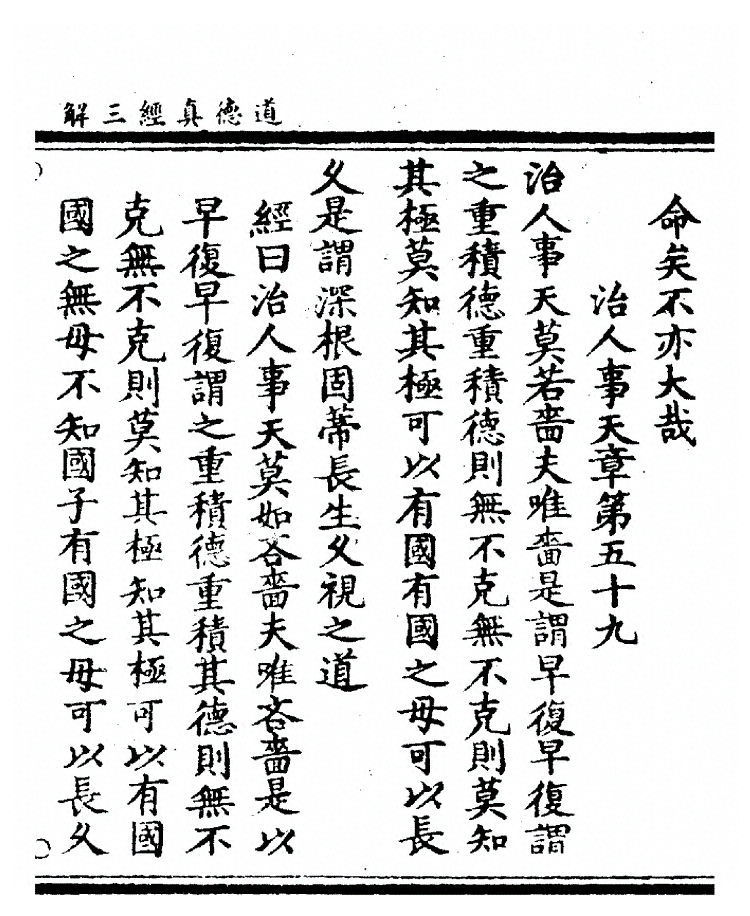 道德真經三解
命矣不亦大哉
治人事天章第五十九
治人事天莫若嗇夫唯嗇是謂早復早復謂
之重積德重積德則無不克無不克則莫知
其極莫知其極可以有國有國之母可以長
久是謂深根固蔕長生久視之道
經曰治人事天莫如吝嗇夫唯吝嗇是以
早復早復謂之重積德重積其德則無不
克無不克則莫知其極知其極可以有國
國之無母不知國子有國之母可以長久